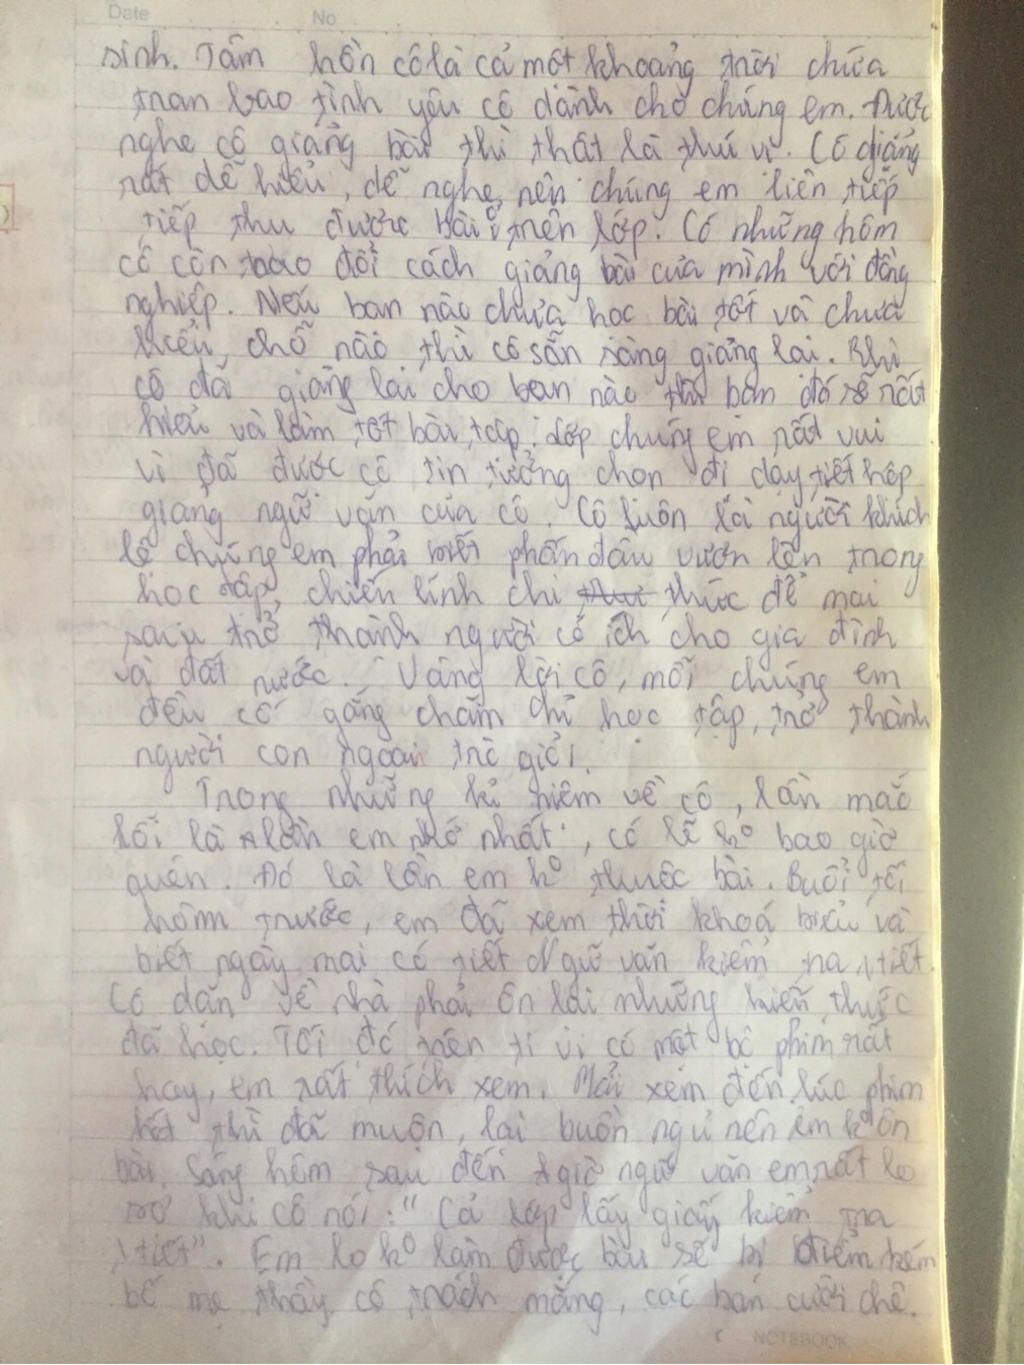 Date No
sinh. Tâm hồn cô là cả một khoảng trời chứa
tran bao tình yêu cô dành cho chúng em. Được
nghe cô giảng bài thì thật là thú vị. Cô giảng
rất dễ hiểu, dễ nghe, nên chúng em liên tiếp
tiếp thu được bài ở trên lớp. Có những hôm
cô còn trao đổi cách giảng bài của mình với đồng
nghiệp. Nếu bạn nào chưa học bài tốt và chưa
hiểu, chỗ nào thì cô sẵn sàng giảng lại. Khi
cô đã giảng lại cho bạn nào thì bạn đó sẽ rất
hiểu và làm tốt bài tập. Lớp chúng em rất vui
vì đã được cô tin tưởng chọn đi dạy tiết hộp
giảng ngữ văn của cô. Cô luôn là người khích
lệ chúng em phải biết phấn đấu vươn lên trong
học tập, chiến lính chi thức để mai
sau trở thành người có ích cho gia đình
và đất nước. Vâng lời cô, mỗi chúng em
đều cố gắng chăm chỉ học tập, trở thành
người con ngoan trò giỏi.
Trong những kỉ niệm về cô, lần mắc
lỗi là lần em nhớ nhất, có lẽ ko bao giờ
quên. Đó là lần em ko thuộc bài. Buổi tối
hôm trước, em đã xem thời khoá biểu và
biết ngày mai có tiết Ngữ văn kiểm tra 1 tiết.
Cô dặn về nhà phải ôn lại những kiến thức
đã học. Tối đó trên ti vi có một bộ phim rất
hay, em rất thích xem. Mải xem đến lúc phim
hết thì đã muộn, lại buồn ngủ nên em ko ôn
bài. Sáng hôm sau đến giờ ngữ văn em rất lo
sợ khi cô nói: "Cả lớp lấy giấy kiểm tra
1 tiết". Em lo ko làm được bài sẽ bị điểm kém
bố mẹ thầy cô trách mắng, các bạn cười chê.
NOTEBOOK